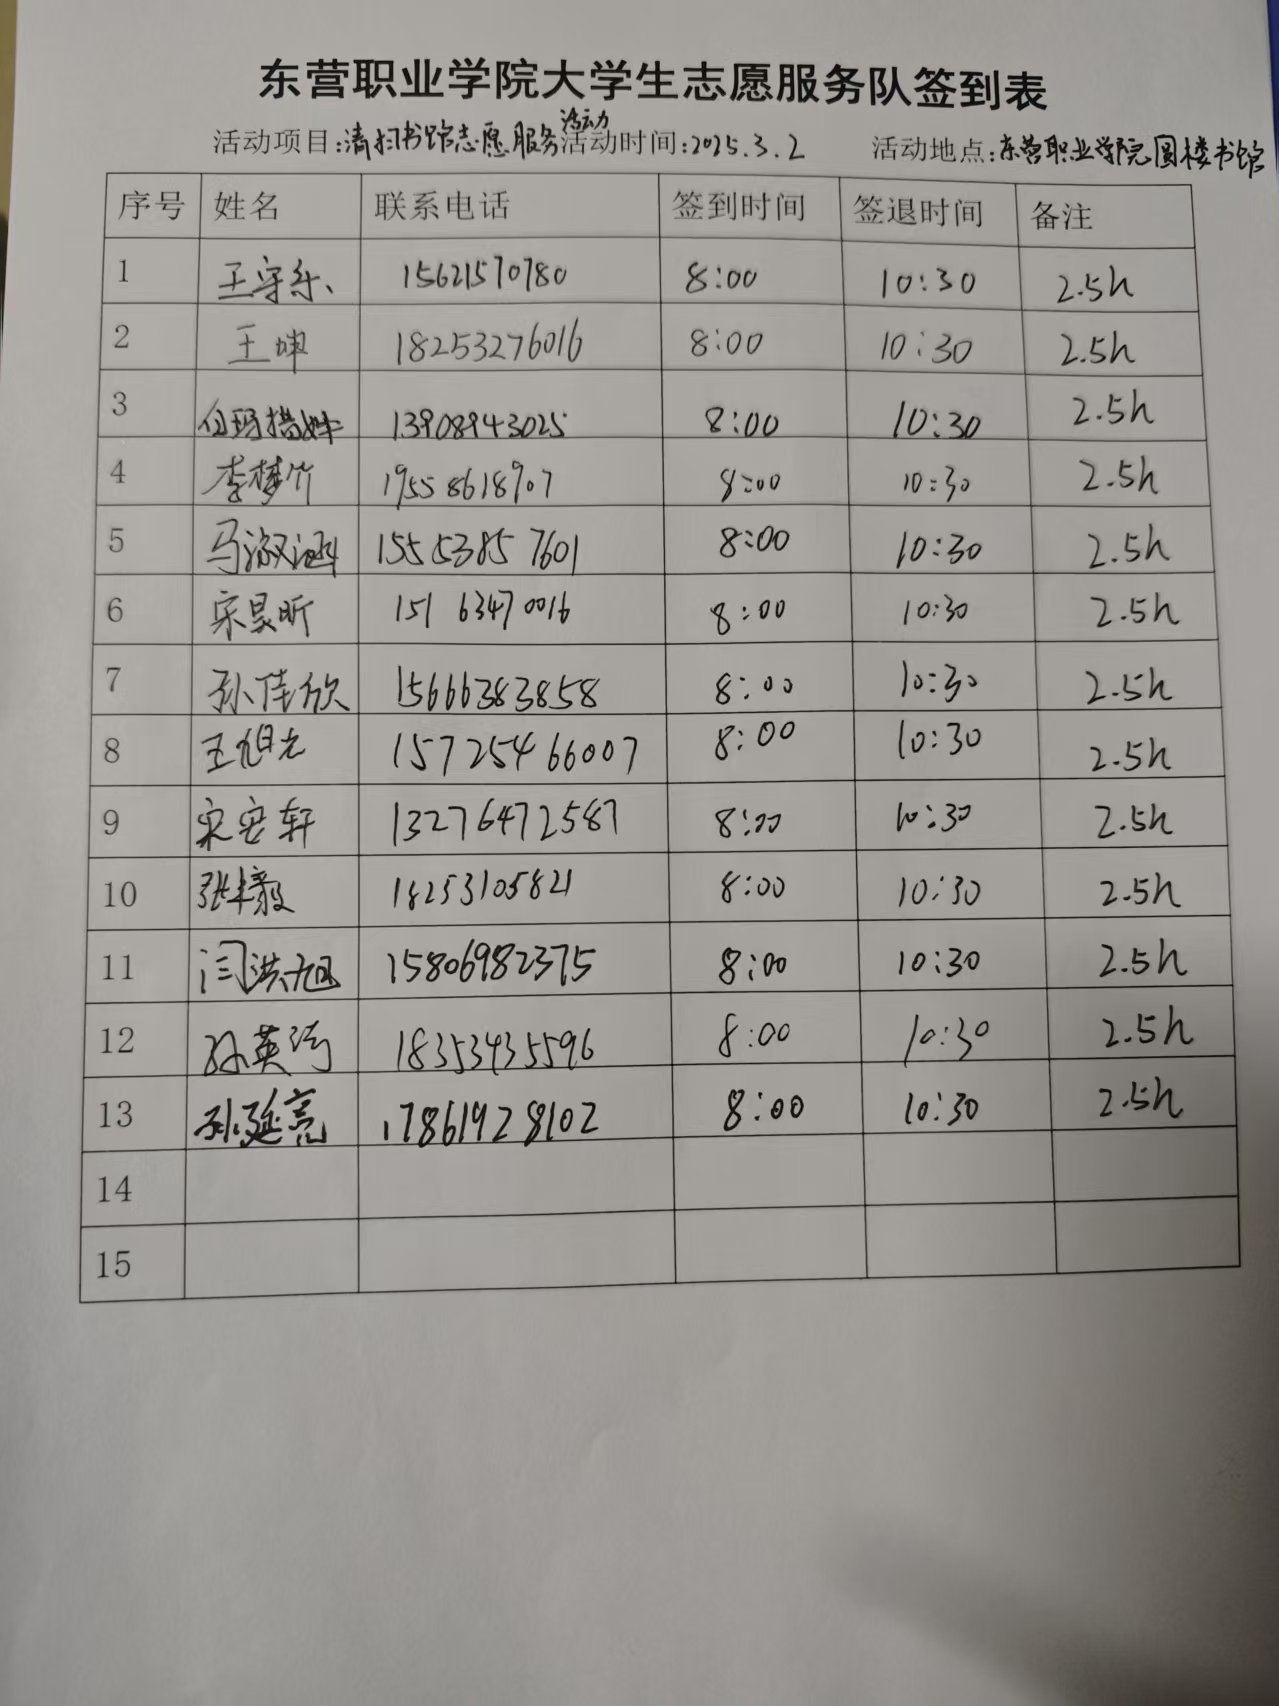 东营职业学院大学生志愿服务队签到表
活动项目:清扫书馆志愿服务活动 活动时间:2025.3.2 活动地点:东营职业学院圆楼书馆
序号 姓名 联系电话 签到时间 签退时间 备注
1 王守乐 15621570780 8:00 10:30 2.5h
2 王坤 18253276016 8:00 10:30 2.5h
3 白玛措姆 13908943025 8:00 10:30 2.5h
4 李梦竹 19558618907 8:00 10:30 2.5h
5 马淑涵 15553857601 8:00 10:30 2.5h
6 宋昊昕 151 6347 0016 8:00 10:30 2.5h
7 孙佳欣 15666383858 8:00 10:30 2.5h
8 王旭光 15725466007 8:00 10:30 2.5h
9 宋安轩 13276472587 8:00 10:30 2.5h
10 张毅 18253105821 8:00 10:30 2.5h
11 闫洪旭 15806982375 8:00 10:30 2.5h
12 孙英 18353435596 8:00 10:30 2.5h
13 孙延亮 17861928102 8:00 10:30 2.5h
14
15